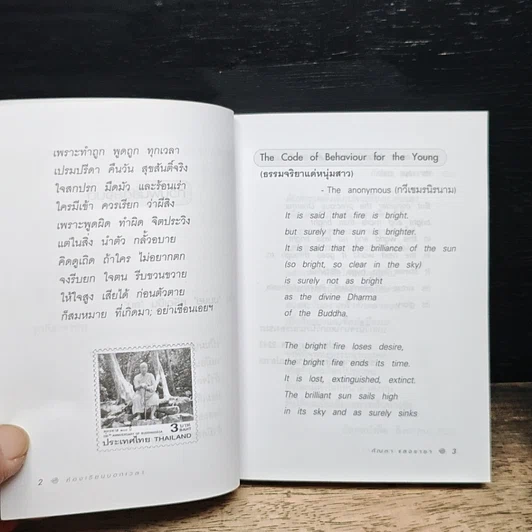 เพราะทำถูก พูดถูก ทุกเวลา
เปรมปรีดา คืนวัน สุขสันติ์จริง
ใจสกปรก มืดมัว และร้อนเร่า
ใครมีเข้า ควรเรียก ว่าผีสิง
เพราะพูดผิด ทำผิด จิตประวิง
แต่ในสิ่ง นำตัว กลั้วอบาย
คิดดูเถิด ถ้าใคร ไม่อยากตก
จงรีบยก ใจตน รีบขวนขวาย
ให้ใจสูง เสียได้ ก่อนตัวตาย
ก็สมหมาย ที่เกิดมา; อย่าเชือนเอยฯ
3 บาท
BAHT
ประเทศไทย THAILAND
2
The Code of Behaviour for the Young
(ธรรมจริยาแด่หนุ่มสาว)
- The anonymous (กวีเขมรนิรนาม)
It is said that fire is bright.
but surely the sun is brighter.
It is said that the brilliance of the sun
(so bright, so clear in the sky)
is surely not as bright
as the divine Dharma
of the Buddha.
The bright fire loses desire,
the bright fire ends its time.
It is lost, extinguished, extinct.
The brilliant sun sails high
in its sky and as surely sinks
3